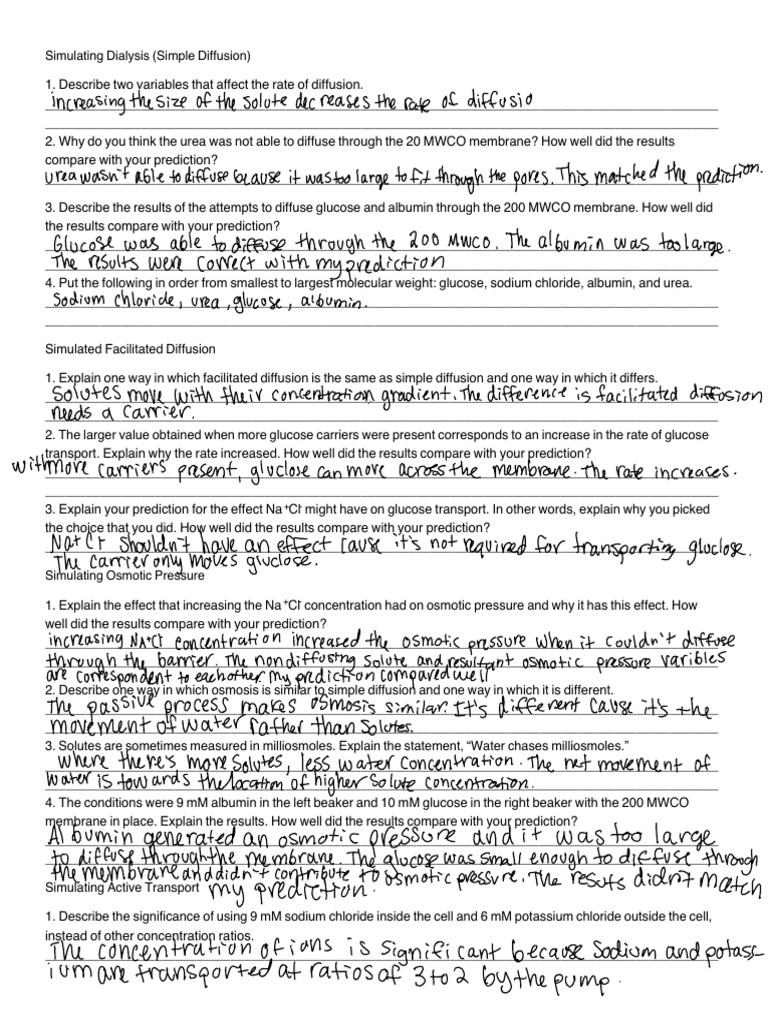 Simulating Dialysis (Simple Diffusion)
1. Describe two variables that affect the rate of diffusion.
increasing the size of the solute decreases the rate of diffusio
2. Why do you think the urea was not able to diffuse through the 20 MWCO membrane? How well did the results
compare with your prediction?
urea wasn't able to diffuse bcause it was too large to fit through the pores. This matched the prediction.
3. Describe the results of the attempts to diffuse glucose and albumin through the 200 MWCO membrane. How well did
the results compare with your prediction?
Glucose was able to diffuse through the 200 MWCO. The albumin was too large.
The results were correct with my prediction
4. Put the following in order from smallest to largest molecular weight: glucose, sodium chloride, albumin, and urea.
Sodium chloride, urea, glucose, albumin.
Simulated Facilitated Diffusion
1. Explain one way in which facilitated diffusion is the same as simple diffusion and one way in which it differs.
Solutes move with their concentration gradient. The difference is facilitated diffusion
needs a carrier.
2. The larger value obtained when more glucose carriers were present corresponds to an increase in the rate of glucose
transport. Explain why the rate increased. How well did the results compare with your prediction?
with more carriers present, gluclose can move across the membrane. The rate increases.
3. Explain your prediction for the effect Na⁺Cl⁻ might have on glucose transport. In other words, explain why you picked
the choice that you did. How well did the results compare with your prediction?
Na+Cl- shouldn't have an effect cause it's not required for transporting gluclose.
The carrier only moves gluclose.
Simulating Osmotic Pressure
1. Explain the effect that increasing the Na⁺Cl⁻ concentration had on osmotic pressure and why it has this effect. How
well did the results compare with your prediction?
increasing NA+Cl- concentration increased the osmotic pressure when it couldn't diffuse
through the barrier. The nondiffusing solute and resultant osmotic pressure varibles
are correspondent to eachother my prediction compared well
2. Describe one way in which osmosis is similar to simple diffusion and one way in which it is different.
The passive process makes osmosis similar. It's different cause it's the
movement of water rather than solutes.
3. Solutes are sometimes measured in milliosmoles. Explain the statement, “Water chases milliosmoles.”
where there's more solutes, less water concentration. The net movement of
water is towards the location of higher solute concentration.
4. The conditions were 9 mM albumin in the left beaker and 10 mM glucose in the right beaker with the 200 MWCO
membrane in place. Explain the results. How well did the results compare with your prediction?
Albumin generated an osmotic pressure and it was too large
to diffuse through the membrane. The glucose was small enough to diffuse through
the membrane and didn't contribute to osmotic pressure. The resuts didn't match
my prediction.
Simulating Active Transport
1. Describe the significance of using 9 mM sodium chloride inside the cell and 6 mM potassium chloride outside the cell,
instead of other concentration ratios.
The concentration of ions is significant because Sodium and potass-
ium are transported at ratios of 3 to 2 by the pump.